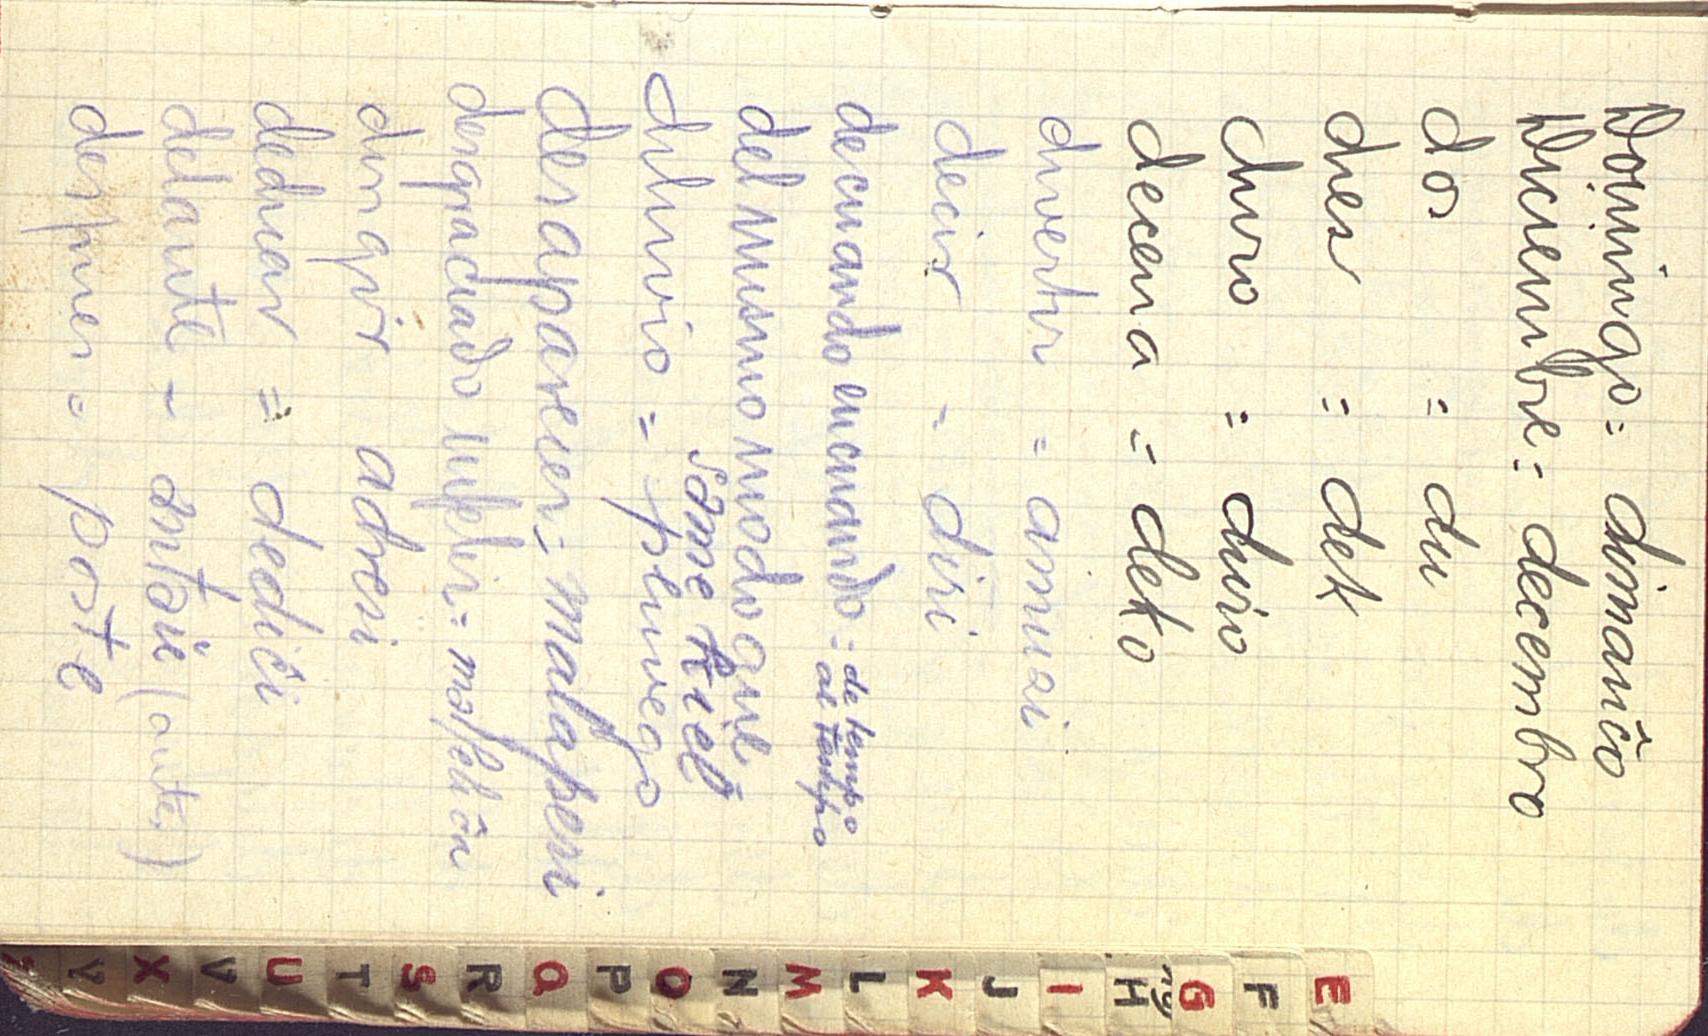 Domingo = dimanĉo
Diciembre = decembro
dos = du
dies = dek
duro = duro
decena = deko
divertir = amuzi
decir - diri
de cuando en cuando = de tempo
al tempo
del mismo modo que
same kiel
diluvio = pluvego
desaparecer = malaperi
desgraciado infeliz =
dirigir adresi
dedicar = dediĉi
delante - antaŭ (ante)
despues = poste
E
F
G
H
I
J
K
L
M
N
O
P
Q
R
S
T
U
V
X
Y